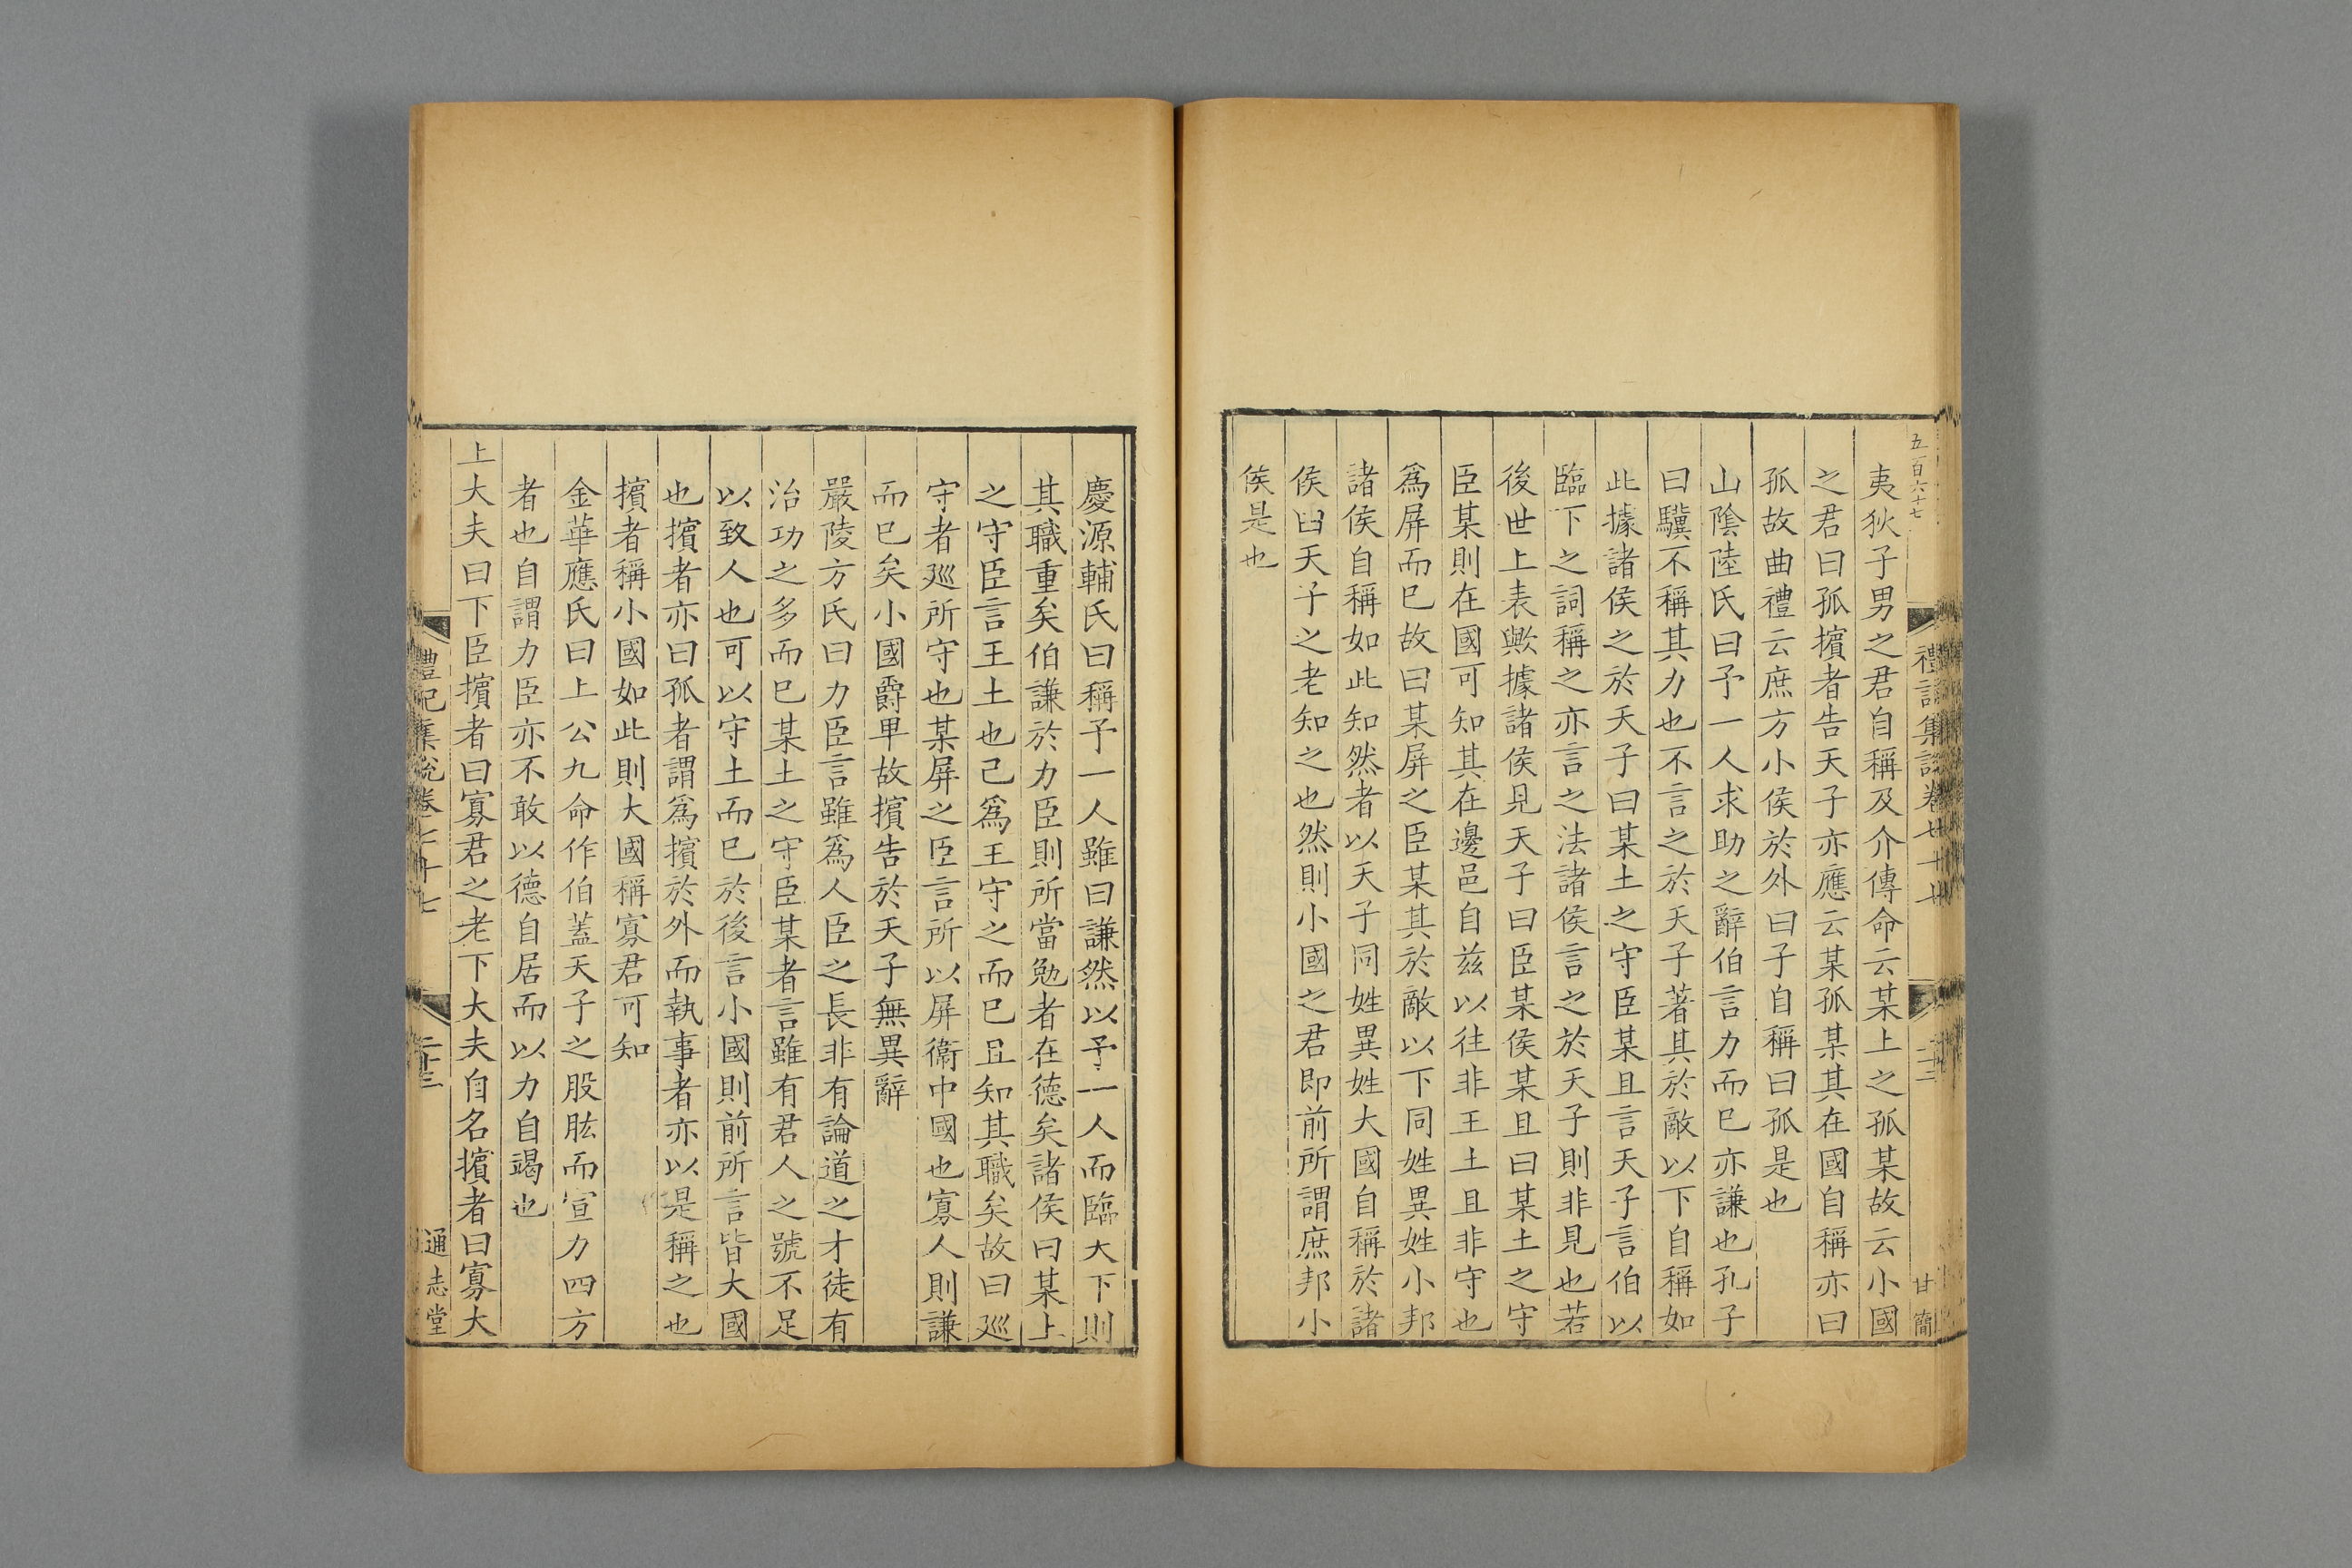 五百六十七
禮記集說卷七十七
二十二
甘簡
夷狄子男之君自稱及介傳命云某上之孤某故云小國
之君曰孤擯者告天子亦應云某孤某其在國自稱亦曰
孤故曲禮云庶方小侯於外曰子自稱曰孤是也
山陰陸氏曰予一人求助之辭伯言力而已亦謙也孔子
曰驥不稱其力也不言之於天子著其於敵以下自稱如
此據諸侯之於天子曰某土之守臣某且言天子言伯以
臨下之詞稱之亦言之法諸侯言之於天子則非見也若
後世上表歟據諸侯見天子曰臣某侯某且曰某土之守
臣某則在國可知其在邊邑自兹以往非王土且非守也
爲屏而已故曰某屏之臣某其於敵以下同姓異姓小邦
諸侯自稱如此知然者以天子同姓異姓大國自稱於諸
侯曰天子之老知之也然則小國之君即前所謂庶邦小
侯是也
慶源輔氏曰稱予一人雖曰謙然以予一人而臨大下則
其職重矣伯謙於力臣則所當勉者在德矣諸侯曰某土
之守臣言王土也己爲王守之而已且知其職矣故曰廵
守者廵所守也某屏之臣言所以屏衞中國也寡人則謙
而已矣小國爵卑故擯告於天子無異辭
嚴陵方氏曰力臣言雖爲人臣之長非有論道之才徒有
治功之多而已某土之守臣某者言雖有君人之號不足
以致人也可以守土而已於後言小國則前所言皆大國
也擯者亦曰孤者謂爲擯於外而執事者亦以是稱之也
擯者稱小國如此則大國稱寡君可知
金華應氏曰上公九命作伯蓋天子之股肱而宣力四方
者也自謂力臣亦不敢以德自居而以力自竭也
上大夫曰下臣擯者曰寡君之老下大夫自名擯者曰寡大
禮記集說卷七十七
二十三
通志堂